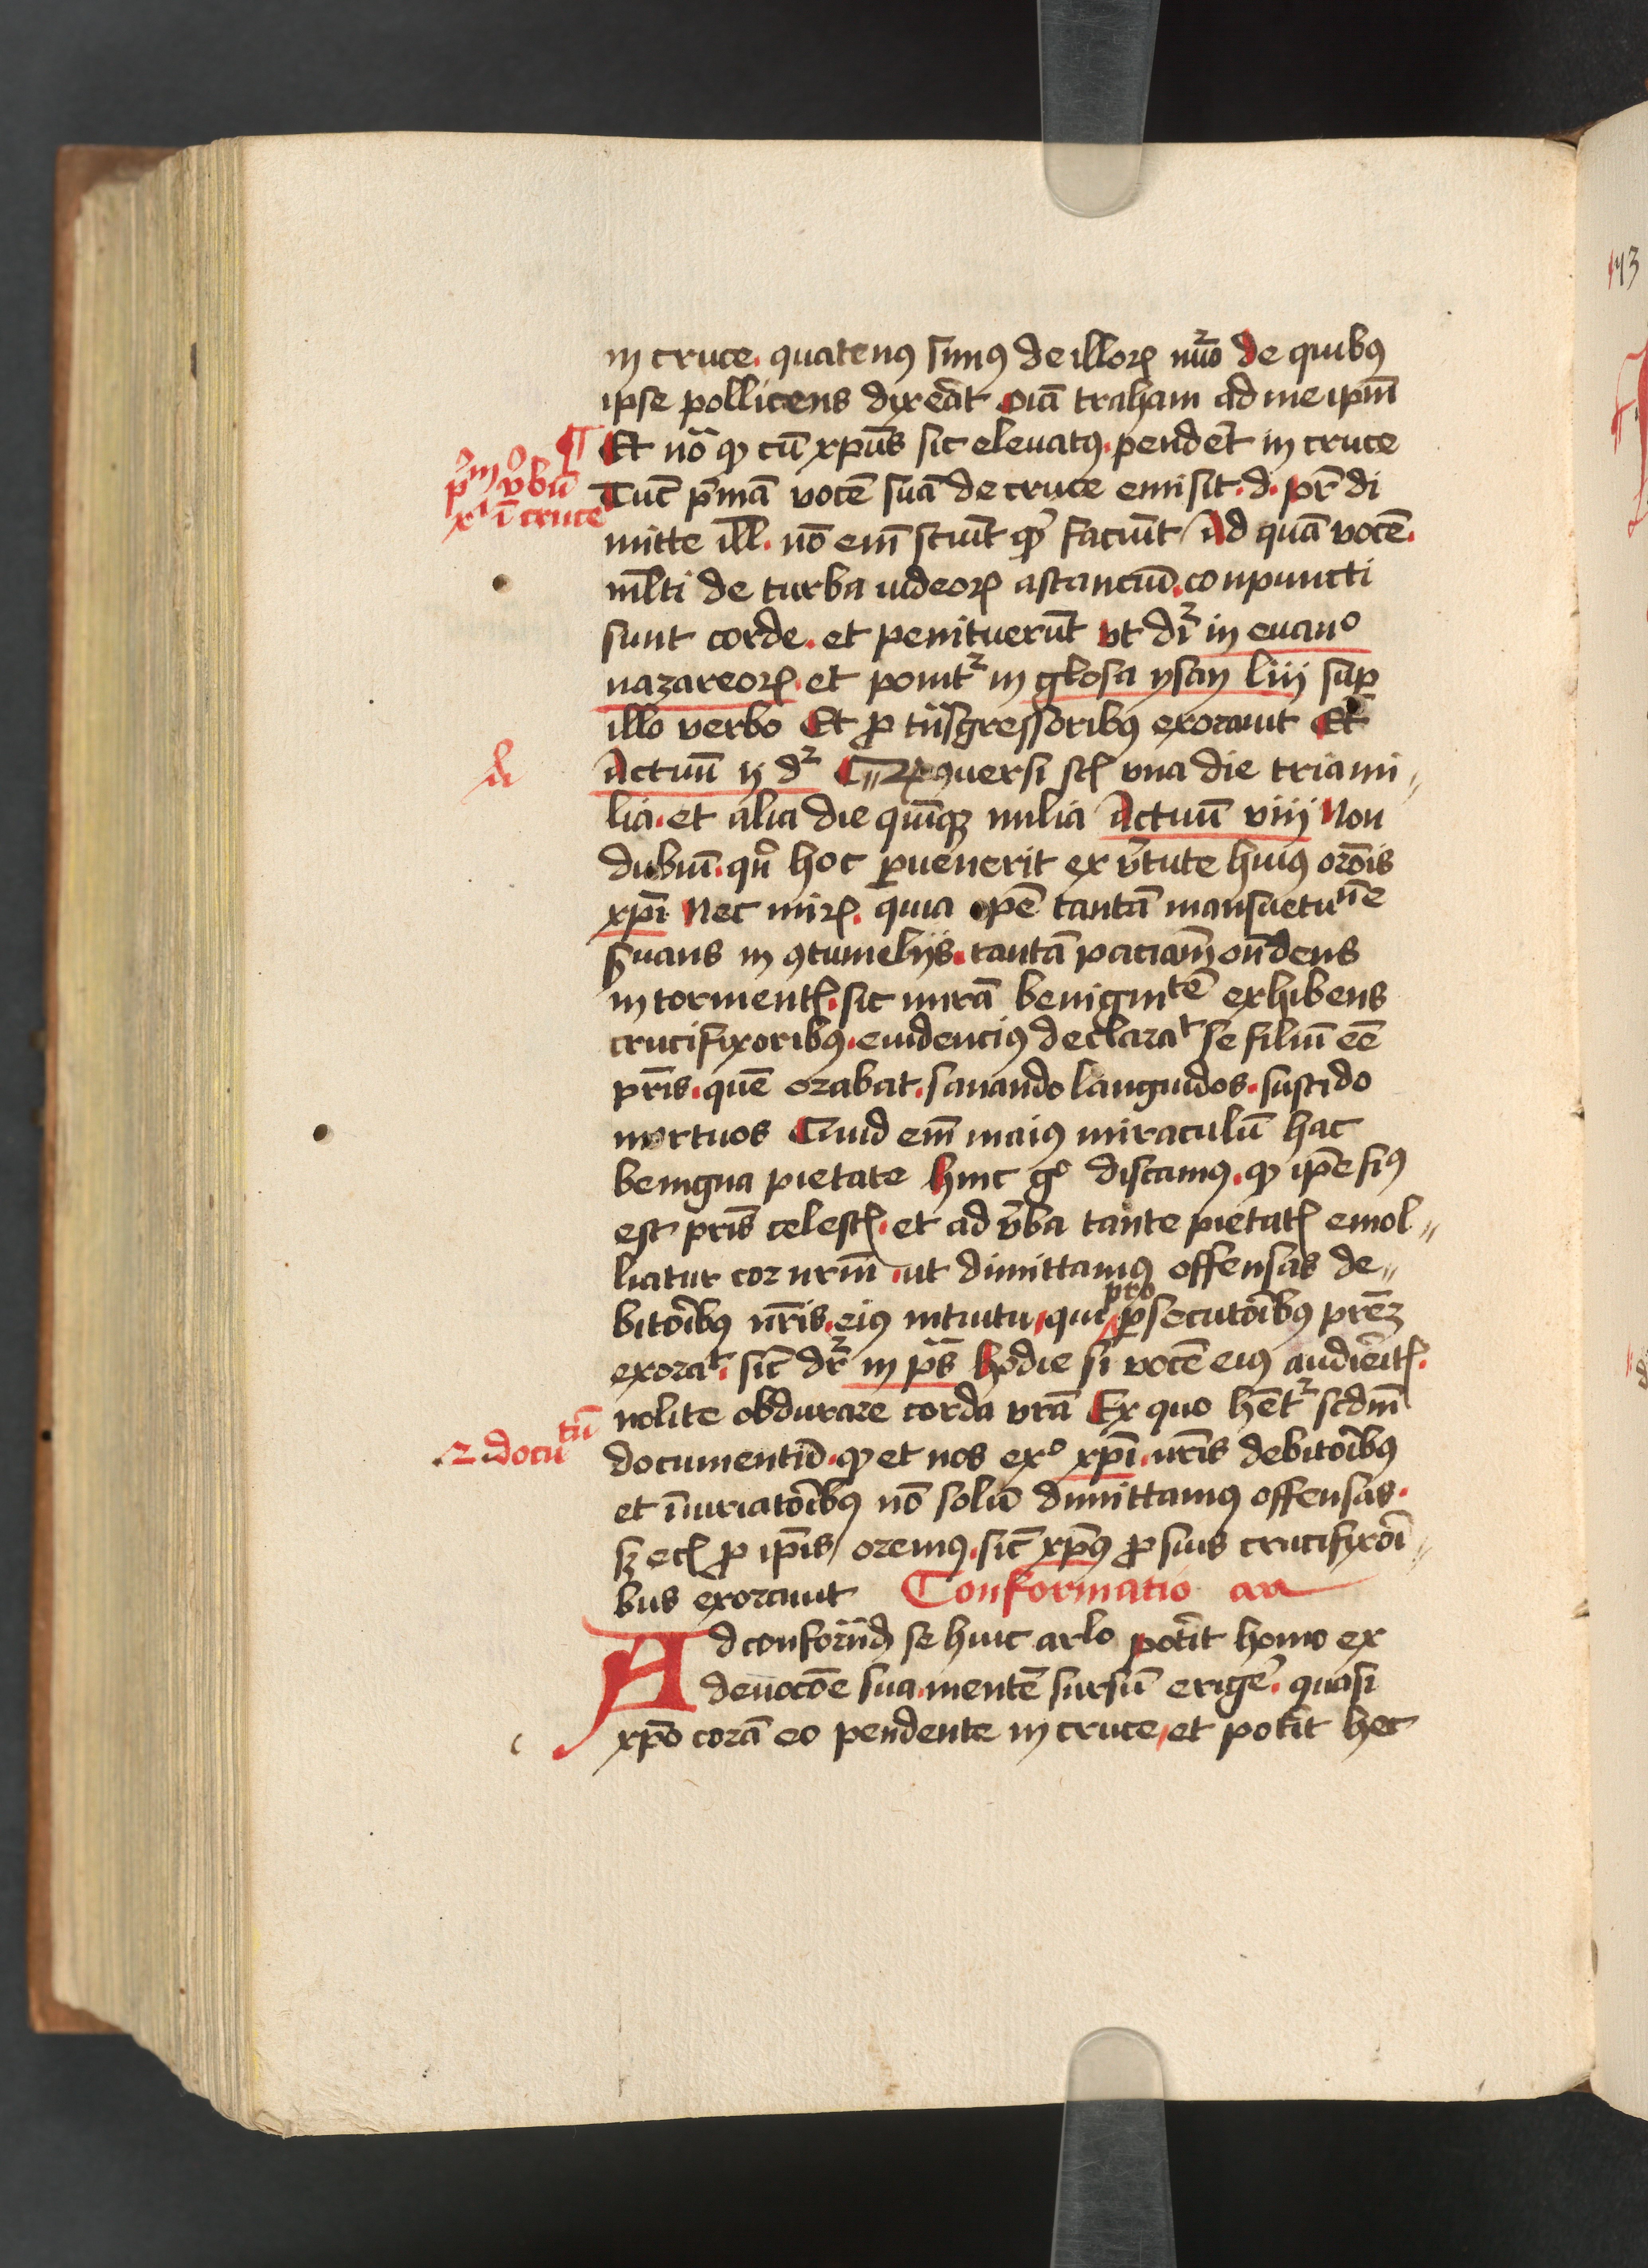 in cruce. quatenꝰ simꝰ de illoꝝ nūo de quibꝰ
ipse pollicens dixe͂at oīa traham ad me ipm̄
¶ Et nō ꝙ cū xpūs sic eleuatꝰ. pende͂t in cruce
p̊m v̊bū
xͥ ī cruce
Tūc p͂mā vocē suā de cruce emisit. d. pr̄ di
mitte ill̄. nō em̄ sciūt qͥ faciūt Ad quā vocē.
ml̄ti de turba iudeoꝝ astanciū. conpuncti
sunt corde. et penituerūt vt dr̄ in euanᵒ
nazareoꝝ. et ponitʳ in glosa ysay liij sup
illo verbo Et ꝓ tn̄sgressoribꝰ exorauit Et
Actuū ij dʳ ꝯuersi sꝉ vna die tria mi
lia. et alia die quīqꝫ milia Actuū viij Non
dubiū. qn̄ hoc ꝑuenerit ex v͂tute huiꝰ orōis
xpī Nec miꝝ. quia pē tantā mansuetuⁿᵉ
ẜuans in ꝯtumelijs. tantā paciam̄ on̄dens
in tormentꝭ. sic mirā benignitē exhibens
crucifixoribꝰ. euidenciꝰ declaraᵗ se filiū eē
pr̄is. quē orabat. sanando languidos. suscꝭdo
mortuos Quid em̄ maiꝰ miraculū hac
benigna pietate hinc gᵒ discamꝰ. ꝙ ip̄e fiꝰ
est pr̄is celestꝭ. et ad v͂ba tante pietatꝭ emol
liatur cor nrm̄. ut dimittamꝰ offensas de
bitoībꝰ nr̄is. eiꝰ intuitu, qui pro ꝑsecutoībꝰ prēꝫ
exoraᵗ. sic̄ dr̄ in pˢ hodie si vocē eiꝰ audie͂itꝭ.
nolite obdurare corda vr̄a Ex quo hētʳ scdm̄
.2. docuᵗū
documentū. ꝙ et nos exᵒ xpī. nr̄is debitoībꝰ
et īiuriatoībꝰ nō solū dimittamꝰ offensas.
sꝫ ecꝭ ꝓ ip̄is oremꝰ. sic̄ xpūs ꝓ suis crucifixoī
bus exorauit Conformatio
Ad conforn̄dꝫ se huic arlo pote͂it homo ex
deuocōe sua. mentē sursū erige͂. quasi
xpō corā eo pendente in cruce, et pote͂it hec